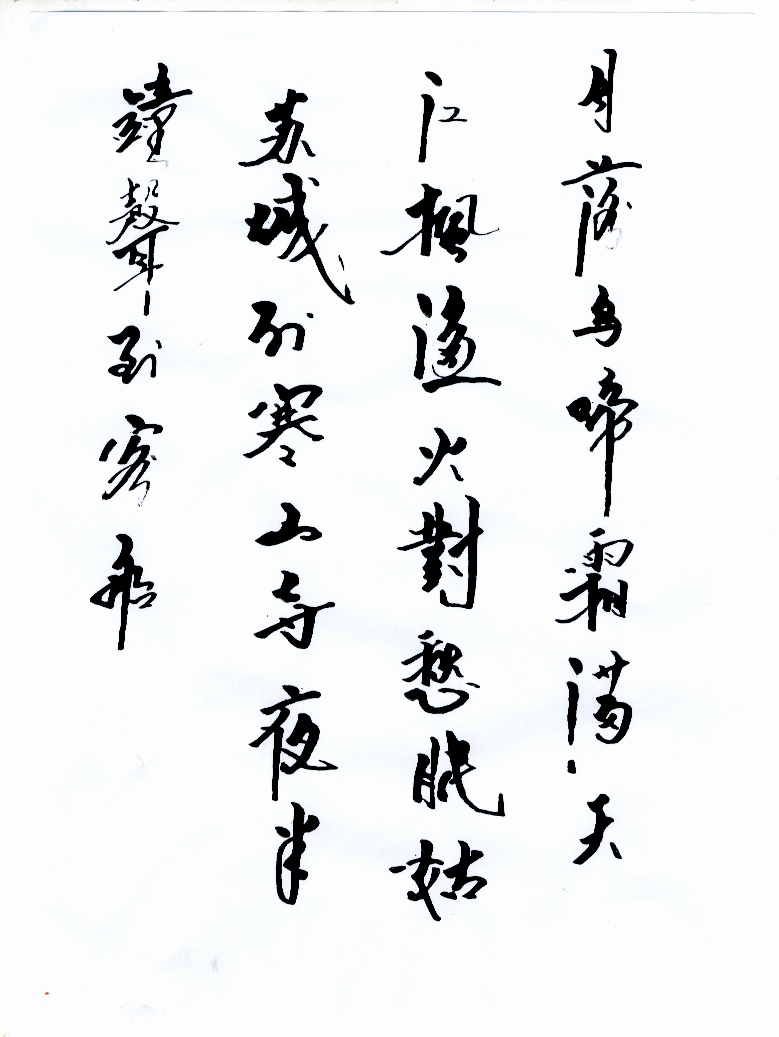 月落烏啼霜滿天
江楓漁火對愁眠姑
苏城外寒山寺夜半
鐘聲到客船